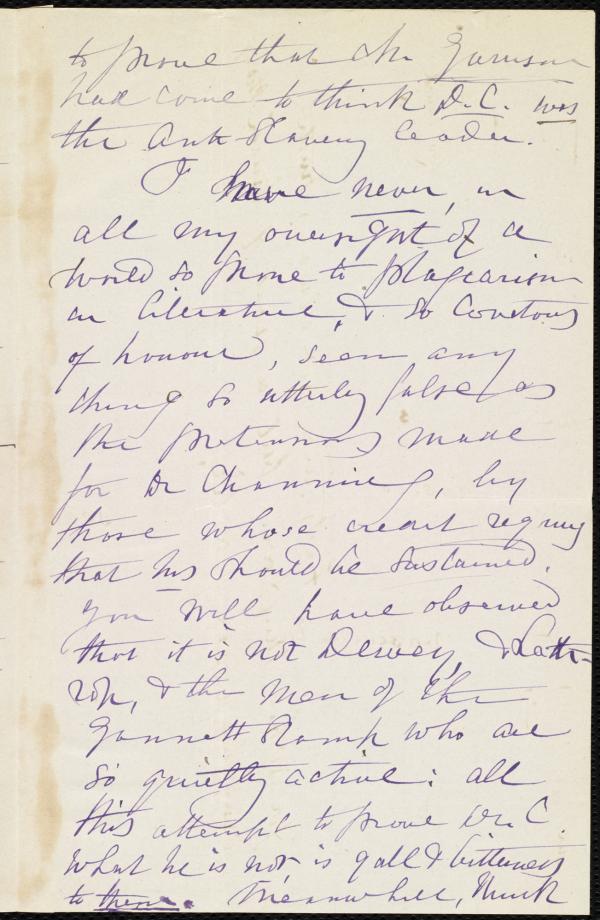 to prove that Mr Garrison
had come to think D.C. was
the Anti Slavery leader.
I have never, in
all my oversight of a
world so prone to plagiarism
in literature, & so covetous
of honour, seen any
thing so utterly false as
the pretensions made
for Dr Channing, by
those whose credit requires
that his should be sustained.
You will have observed
that it is not Dewey, & Loth-
rop, & the men of the
Gannett Stamp who are
so quietly active: all
this attempt to prove Dr. C.
what he is not, is gall & bitterness
to them. Meanwhile,